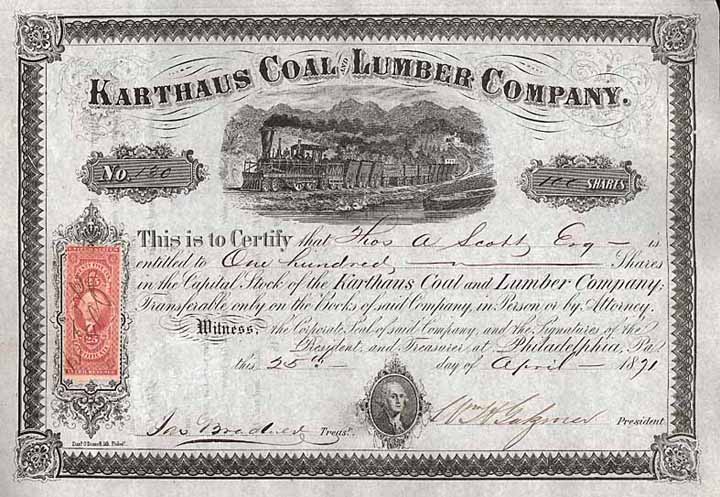 KARTHAUS COAL AND LUMBER COMPANY.
No. 130
100 SHARES
This is to Certify that Thos A Scott Esq is
entitled to One hundred Shares
in the Capital Stock of the Karthaus Coal and Lumber Company;
Transferable only on the Books of said Company, in Person or by Attorney.
Witness, the Corporate Seal of said Company, and the Signatures of the
President and Treasurer at Philadelphia, Pa
this 25th day of April 1871
Treasr.
President
25